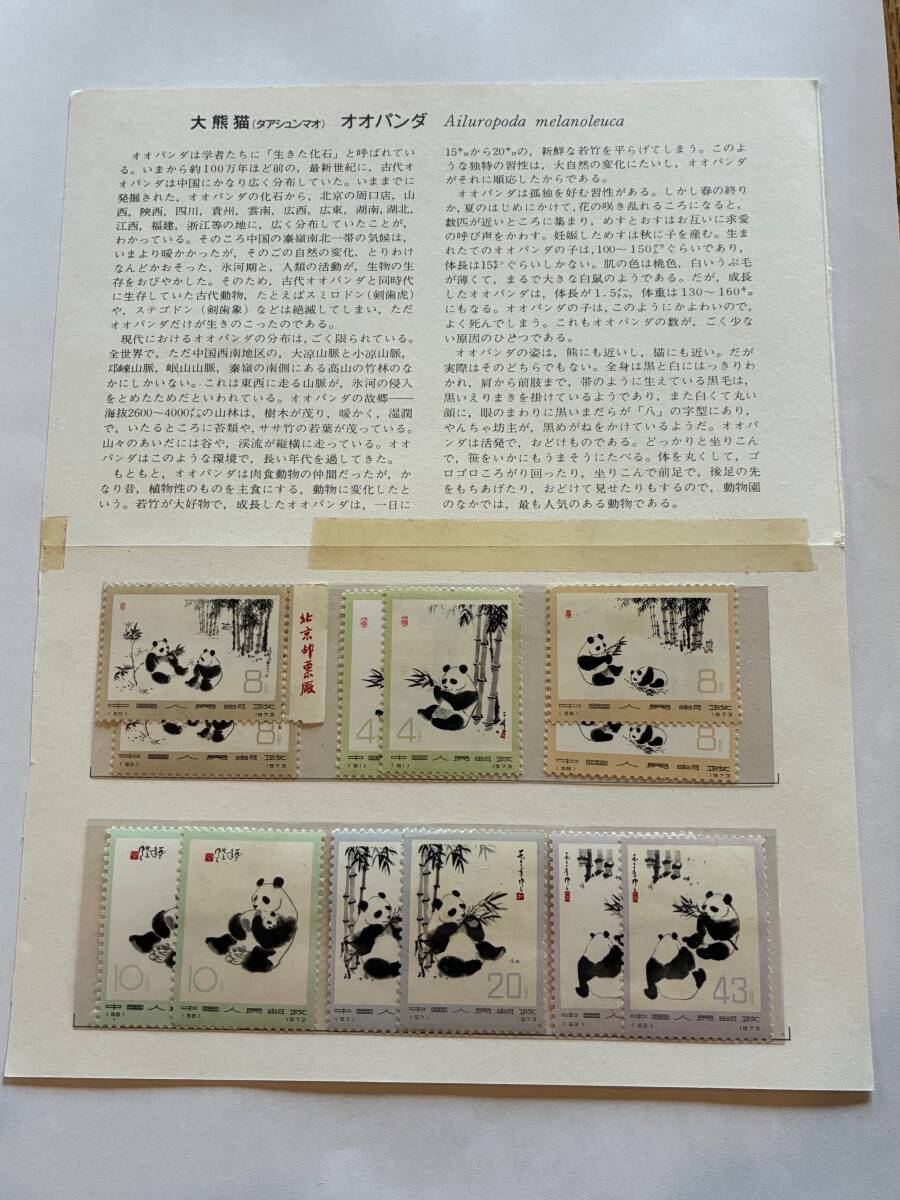 大熊猫(タアシュンマオ) オオパンダ Ailuropoda melanoleuca
オオパンダは学者たちに「生きた化石」と呼ばれてい
る。いまから約100万年ほど前の，最新世紀に，古代オ
オパンダは中国にかなり広く分布していた。いままでに
発掘された，オオパンダの化石から，北京の周口店，山
西，陝西，四川，貴州，雲南，広西，広東，湖南，湖北，
江西，福建，浙江等の地に，広く分布していたことが，
わかっている。そのころ中国の秦嶺南北一帯の気候は，
いまより暖かかったが，そのごの自然の変化，とりわけ
なんどかおそった，氷河期と，人類の活動が，生物の生
存をおびやかした。そのため，古代オオパンダと同時代
に生存していた古代動物，たとえばスミロドン(剣歯虎)
や，ステゴドン(剣歯象)などは絶滅してしまい，ただ
オオパンダだけが生きのこったのである。
現代におけるオオパンダの分布は，ごく限られている。
全世界で，ただ中国西南地区の，大凉山脈と小凉山脈，
邛崍山脈，岷山山脈，秦嶺の南側にある高山の竹林のな
かにしかいない。これは東西に走る山脈が，氷河の侵入
をとめたためだといわれている。オオパンダの故郷——
海抜2600〜4000メートルの山林は，樹木が茂り，暖かく，湿潤
で，いたるところに苔類や，ササ竹の若葉が茂っている。
山々のあいだには谷や，渓流が縦横に走っている。オオ
パンダはこのような環境で，長い年代を過してきた。
もともと，オオパンダは肉食動物の仲間だったが，か
なり昔，植物性のものを主食にする，動物に変化したと
いう。若竹が大好物で，成長したオオパンダは，一日に
15キロから20キロの，新鮮な若竹を平らげてしまう。このよ
うな独特の習性は，大自然の変化にたいし，オオパンダ
がそれに順応したからである。
オオパンダは孤独を好む習性がある。しかし春の終り
か，夏のはじめにかけて，花の咲き乱れるころになると，
数匹が近いところに集まり，めすとおすはお互いに求愛
の呼び声をかわす。妊娠しためすは秋に子を産む。生ま
れたてのオオパンダの子は，100〜150グラムぐらいであり，
体長は15センチぐらいしかない。肌の色は桃色，白いうぶ毛
が薄くて，まるで大きな白鼠のようである。だが，成長
したオオパンダは，体長が1.5メートル，体重は130〜160キロ
にもなる。オオパンダの子は，このようにかよわいので，
よく死んでしまう。これもオオパンダの数が，ごく少な
い原因のひとつである。
オオパンダの姿は，熊にも近いし，猫にも近い。だが
実際はそのどちらでもない。全身は黒と白にはっきりわ
かれ，肩から前肢まで，帯のように生えている黒毛は，
黒いえりまきを掛けているようであり，また白くて丸い
顔に，眼のまわりに黒いまだらが「八」の字型にあり，
やんちゃ坊主が，黒めがねをかけているようだ。オオパ
ンダは活発で，おどけものである。どっかりと坐りこん
で，笹をいかにもうまそうにたべる。体を丸くして，ゴ
ロゴロころがり回ったり，坐りこんで前足で，後足の先
をもちあげたり，おどけて見せたりもするので，動物園
のなかでは，最も人気のある動物である。
北京邮票厂
8
中国人民邮政
(60) 1973
8
中国人民邮政
(60) 1973
4
(61)
4
中国人民邮政
(61) 1973
8
中国人民邮政
(59) 1973
8
中国人民邮政
(59) 1973
10
(58)
10
中国人民邮政
(58) 1973
(57)
20
中国人民邮政
(57) 1973
(62)
43
中国人民邮政
(62) 1973